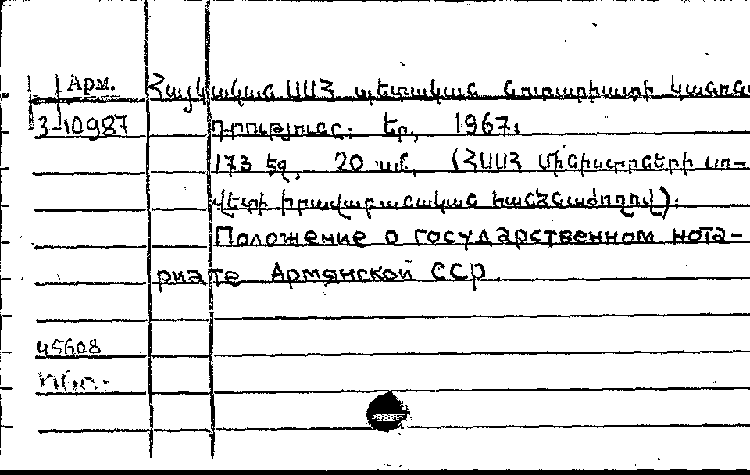 Арм. Հայկական ՍՍՀ պետական նոտարիատի կանոնա
3-10987 դրություն: Եր., 1967:
173 էջ, 20 սմ, (ՀՍՍՀ Մինիստրների սո-
վետի իրավաբանական հանձնաժողով):
Положение о государственном нота-
риате Армянской ССР
45608